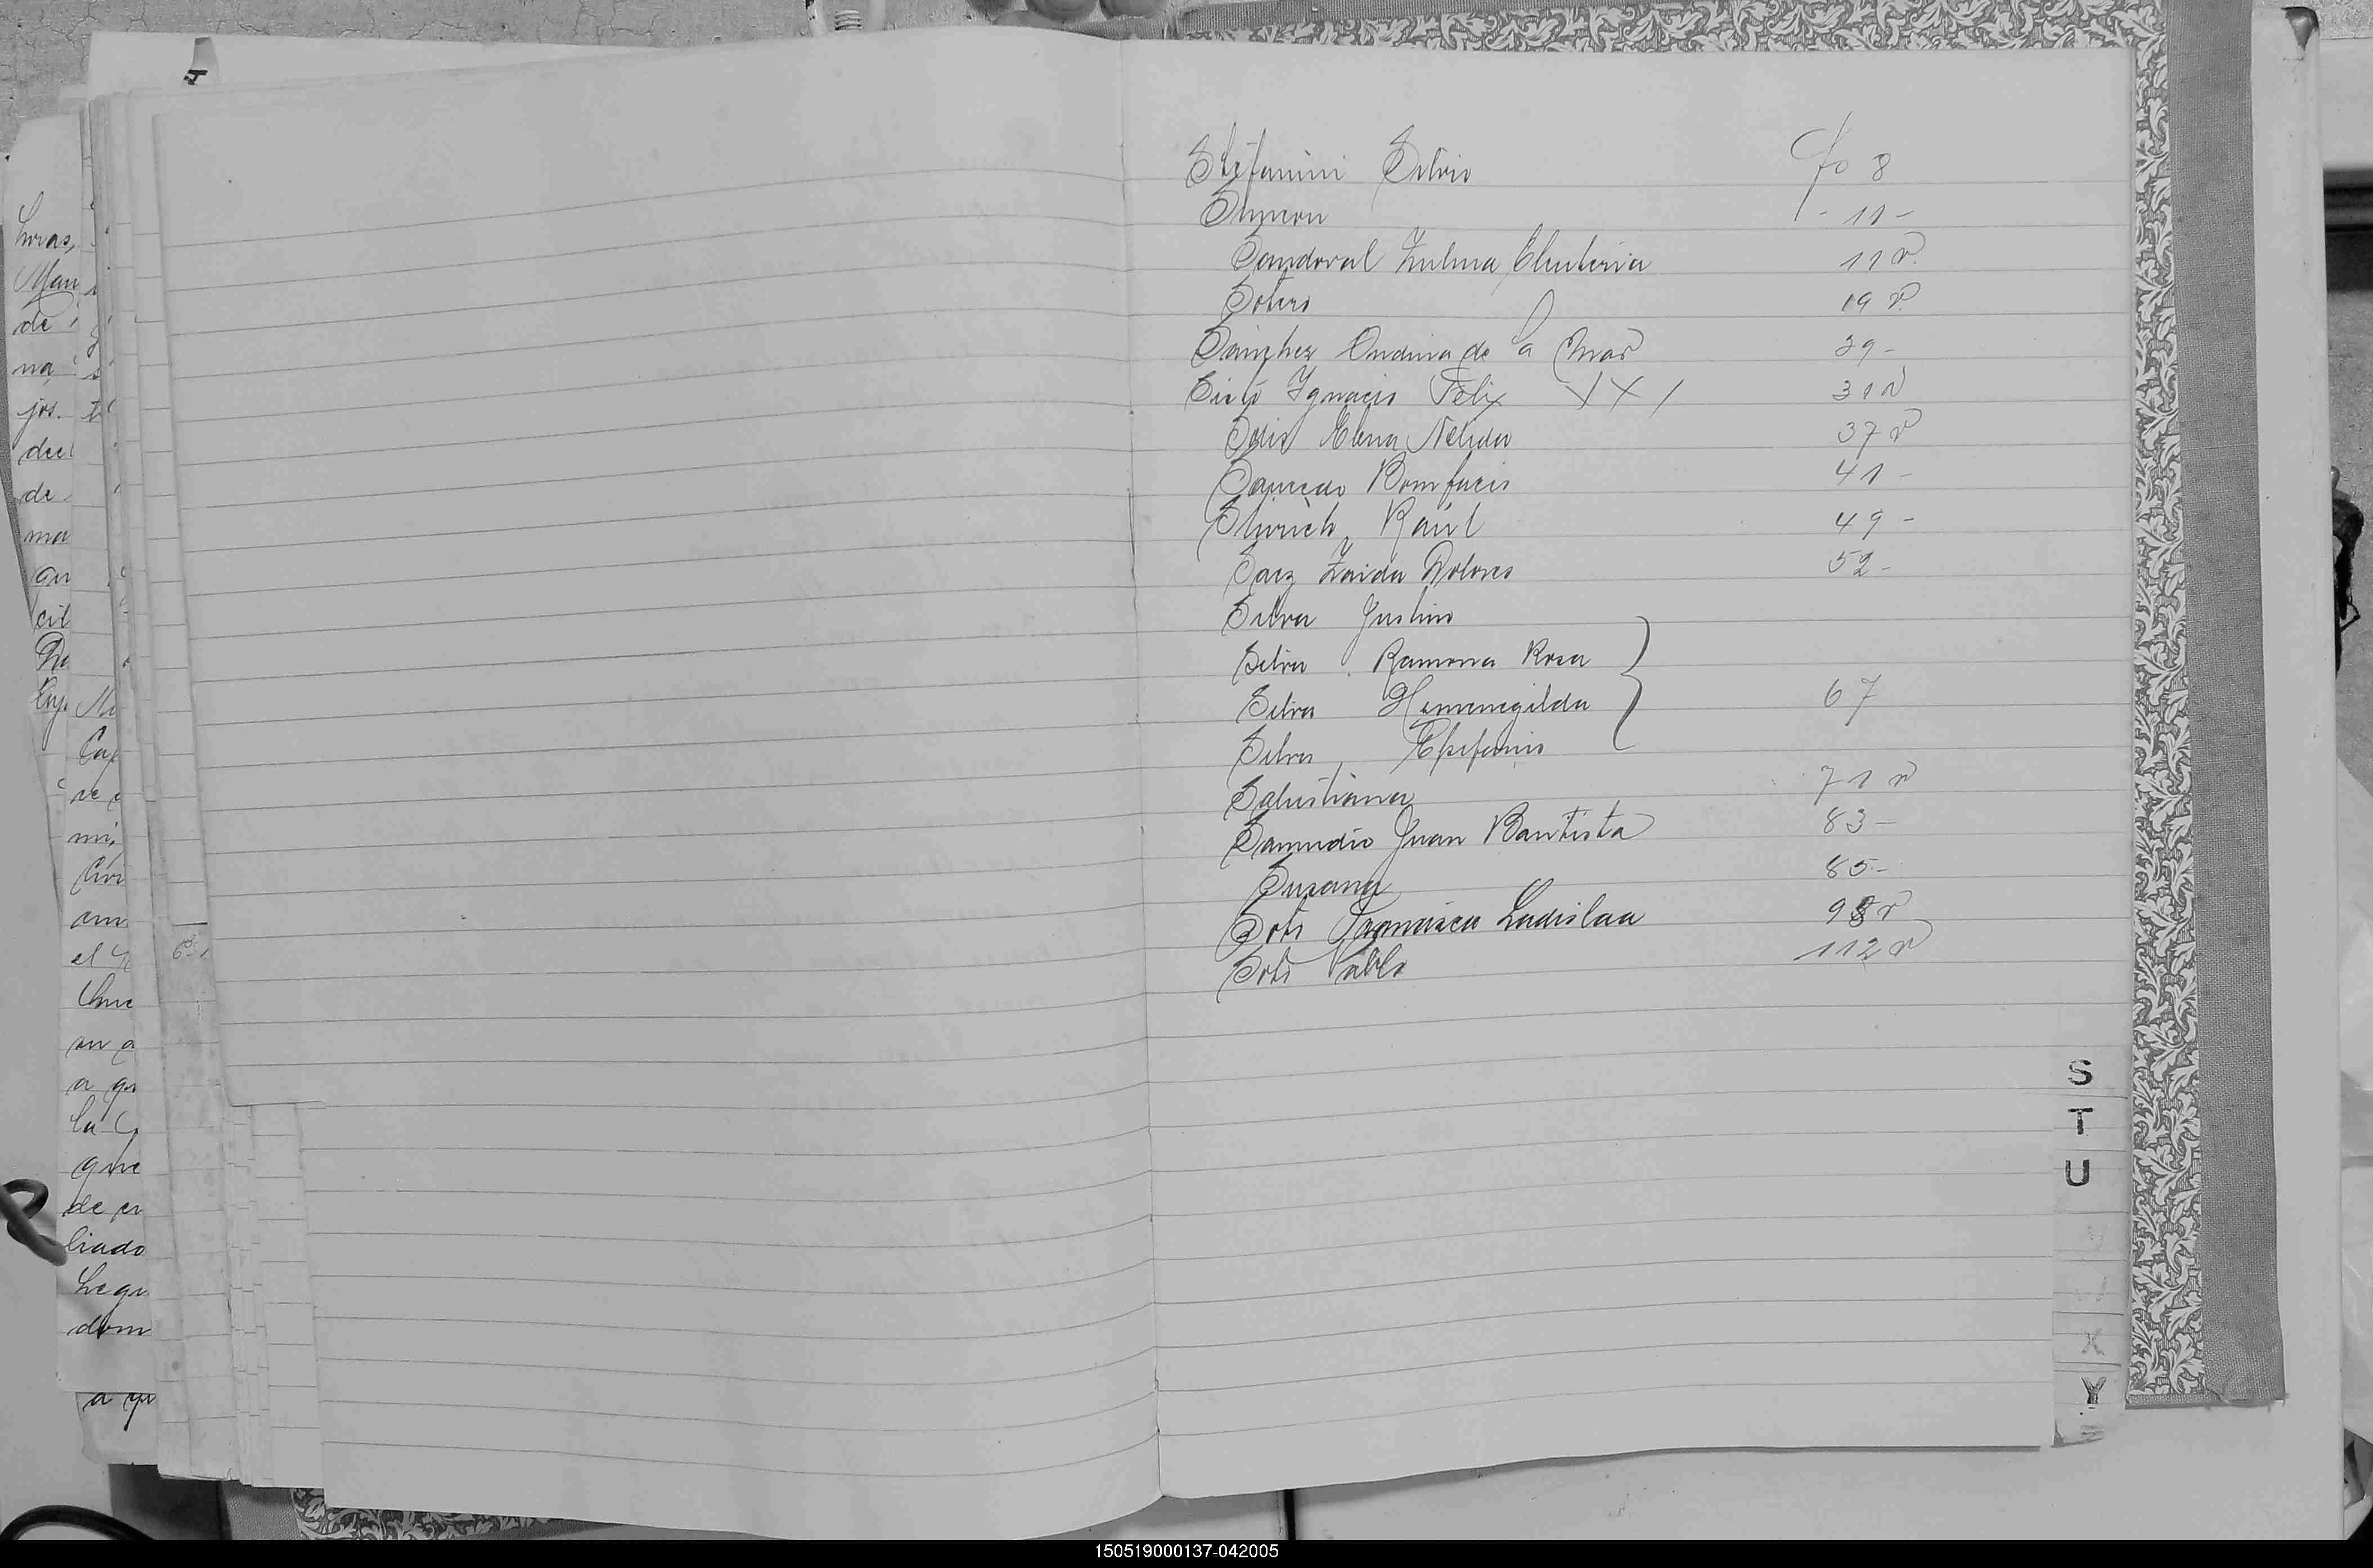 horas,
Man
de
na
jos.
de
ma
cil
Stefanini Silvio fo 8
Simeon - 11 -
Sandoval Zulma Eleuteria 11 v.
Sotero 19 v.
Sánchez Ondina de la Cruz 29 -
Sixto Ignacio Felix 31 v
Solis Elena Nelida 37 v
Saucedo Bonifacio 41 -
Raúl 49 -
Saez Zaida Dolores 52 -
Silva Justino
Silva Ramona Rosa
Silva Hermenegilda 67
Silva Epifanio
Salustiana 71 v
Samudio Juan Bautista 83 -
Susana 85 -
Soto Ladislaa 98 v
Soto Pablo 112 v
que
liado
a qu
S
T
U
X
Y
150519000137-042005